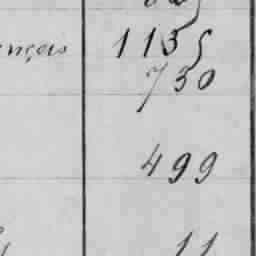 nçais 1135
730
499
11